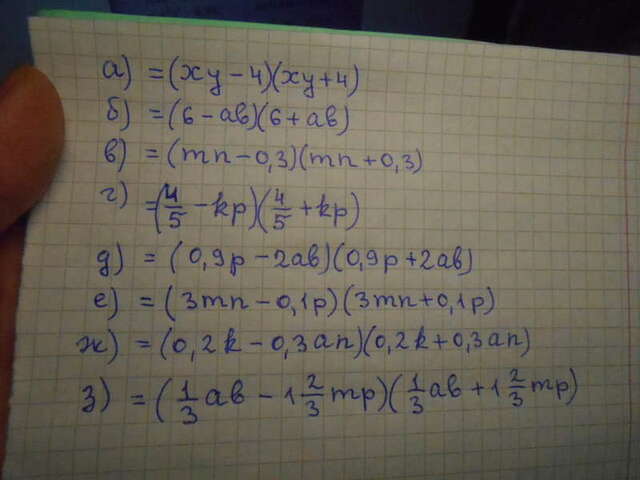 а) =(xy-4)(xy+4)
б) =(6-ab)(6+ab)
в) =(mn-0,3)(mn+0,3)
г) =(4/5-kp)(4/5+kp)
д) =(0,9p-2ab)(0,9p+2ab)
е) =(3mn-0,1p)(3mn+0,1p)
ж) =(0,2k-0,3an)(0,2k+0,3an)
з) =(1/3ab-1 2/3mp)(1/3ab+1 2/3mp)